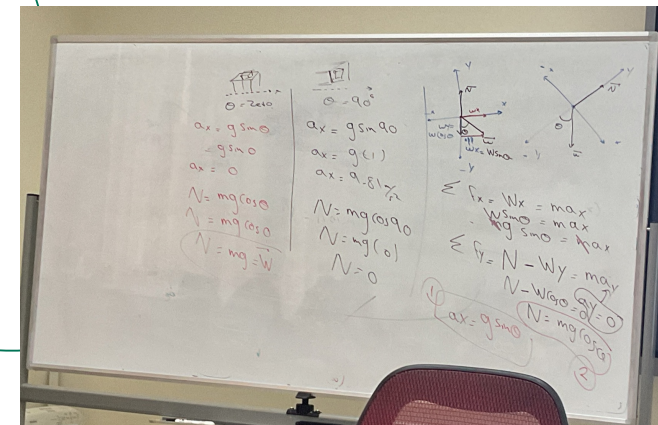 θ = Zero
ax = g sinθ
= g sin0
ax = 0
N = mg cosθ
N = mg cos0
N = mg = W
θ = 90°
ax = g sin90
ax = g(1)
ax = 9.81 m/s²
N = mg cos90
N = mg(0)
N = 0
Y
N
wx
x
θ
W
Wx = W sinθ
-Y
Y
N
θ
W
-Y
Σ Fx = Wx = max
W sinθ = max
mg sinθ = max
Σ Fy = N - Wy = may
N - W cosθ = 0
ay = 0
N = mg cosθ
2
1
ax = g sinθ